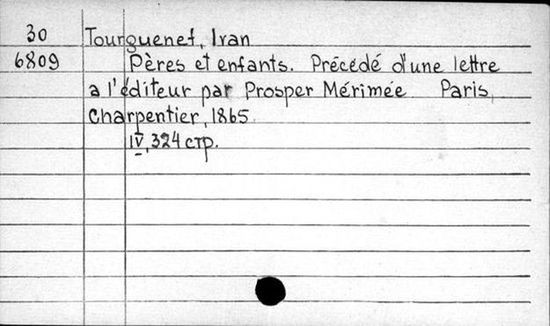 30 Tourguenef, Ivan
6809 Pères et enfants. Précédé d'une lettre
a l'éditeur par Prosper Mérimée Paris,
Charpentier, 1865.
IV, 324 стр.